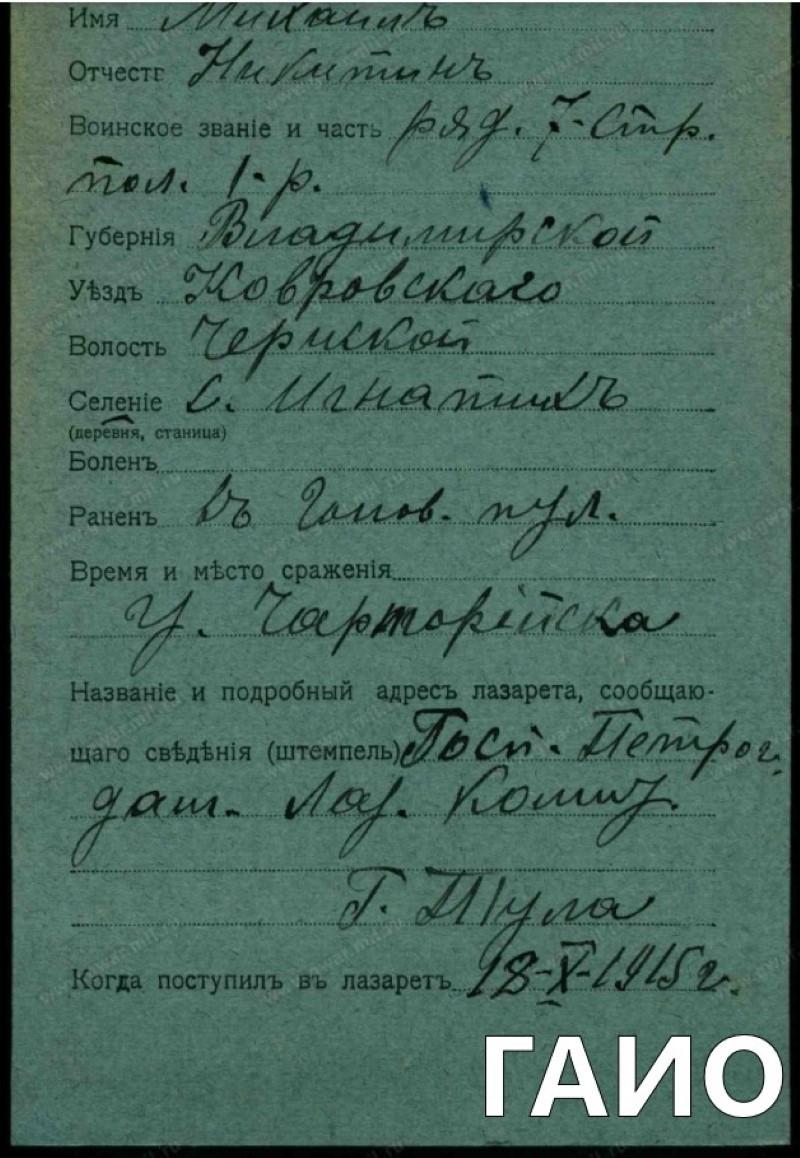 Имя Михаилъ
Отчеств Никитинъ
Воинское званіе и часть ряд. 7-Стр.
пол. 1-р.
Губернія Владимирской
Уѣздъ Ковровскаго
Волость
Селеніе С.
(деревня, станица)
Боленъ
Раненъ въ голов. пул.
Время и мѣсто сраженія
У. Чарторійска
Названіе и подробный адресъ лазарета, сообщаю-
щаго свѣдѣнія (штемпель) Госп. Петрог.
дам. Лаз. Комит.
Г. Тула
Когда поступилъ въ лазаретъ 18-X-1915 г.
ГАИО